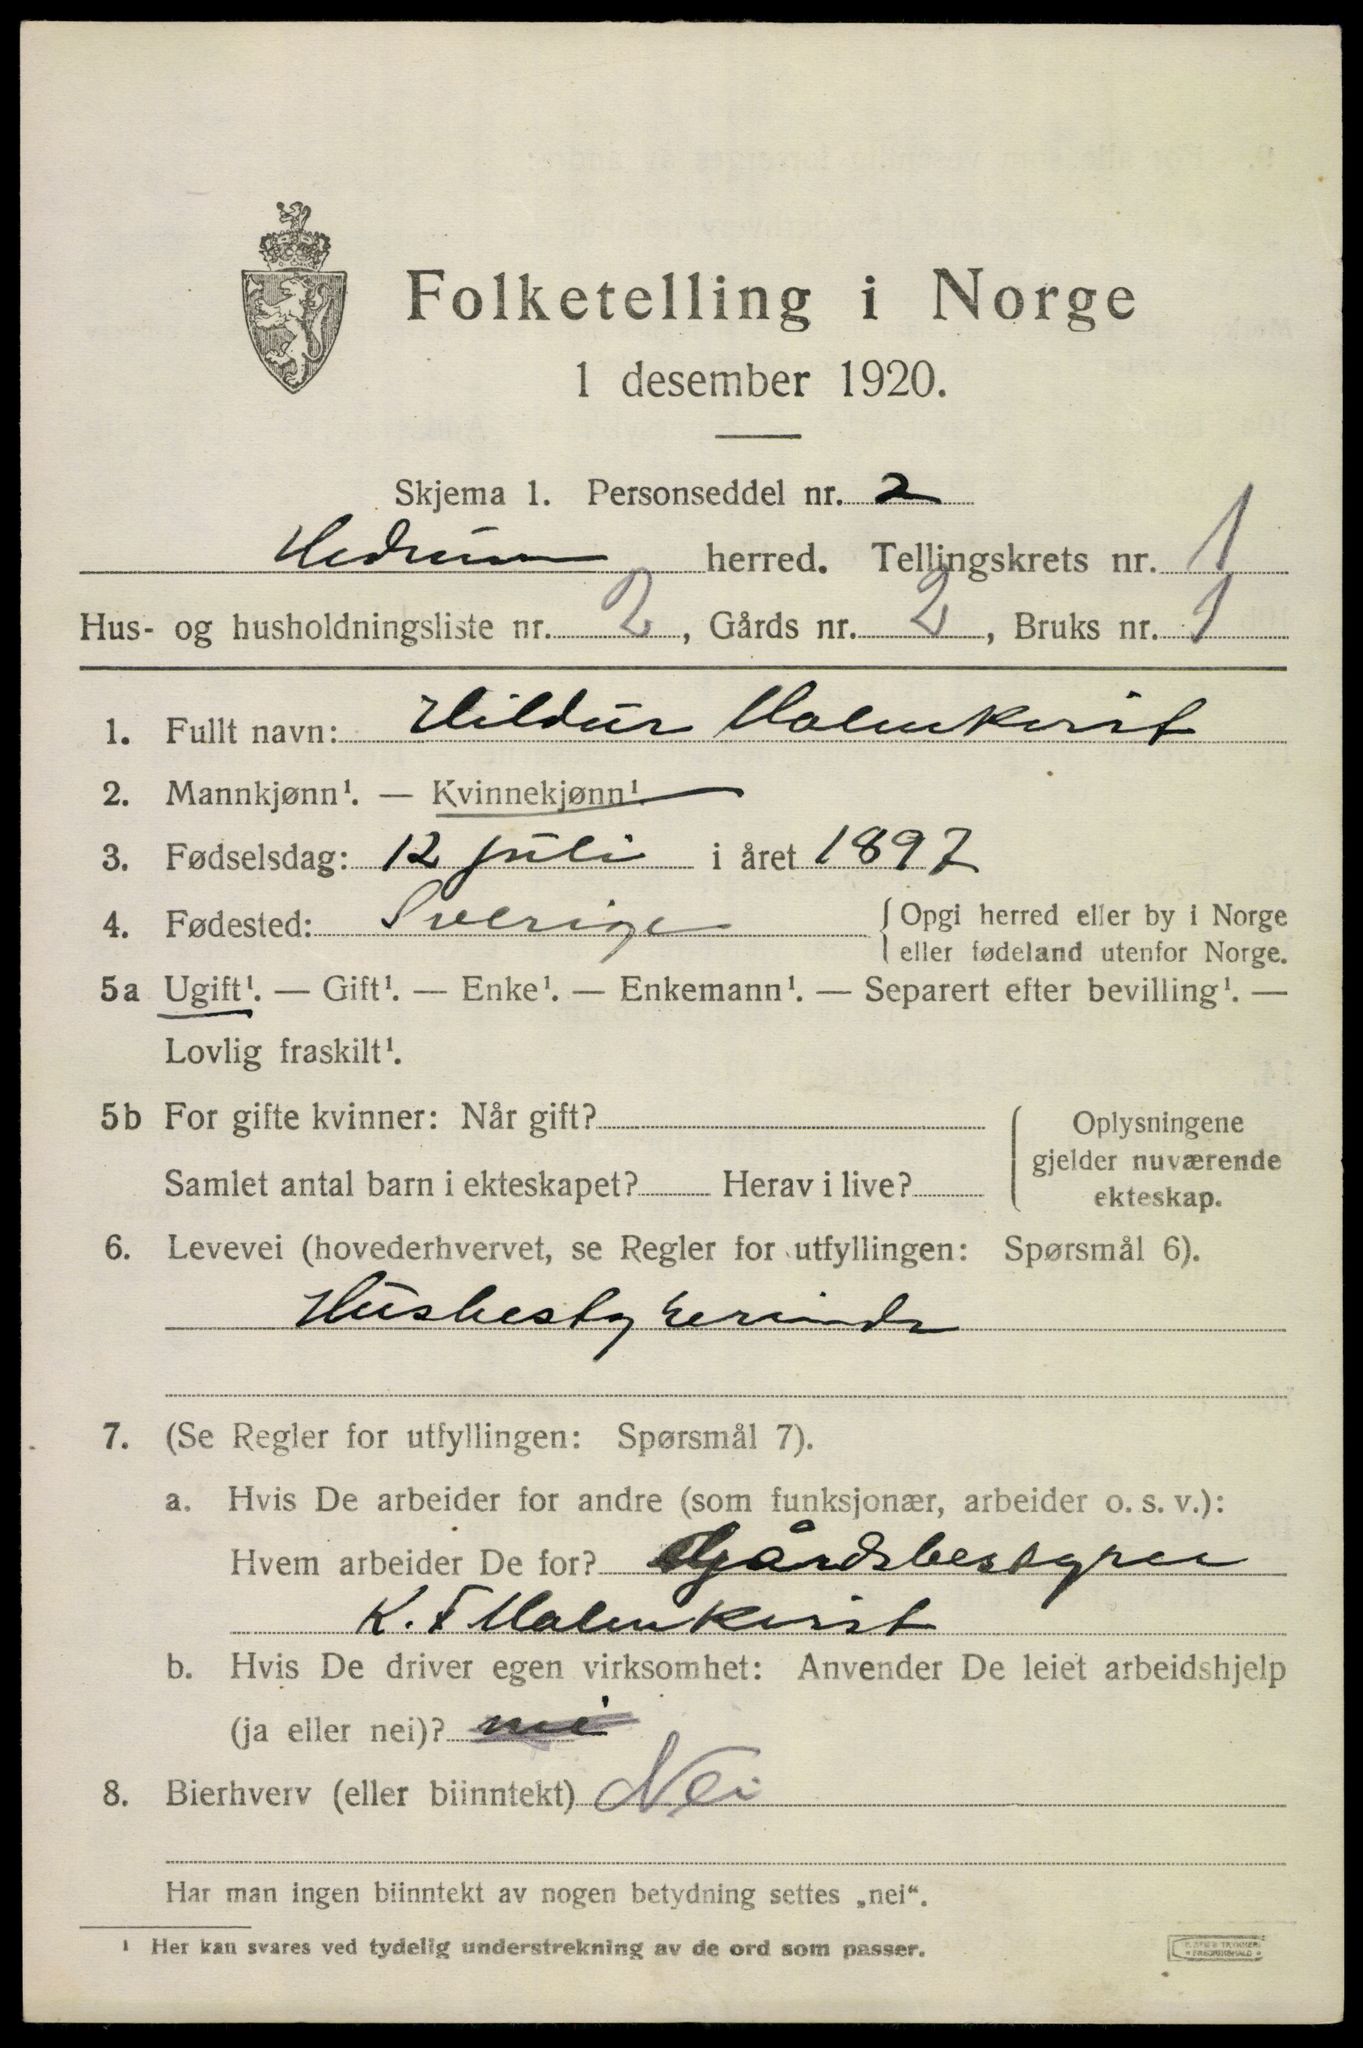 Folketelling i Norge
1 desember 1920.
Skjema 1. Personseddel nr. 2
Hedrum herred. Tellingskrets nr. 1
Hus- og husholdningsliste nr. 2, Gårds nr. 2, Bruks nr. 1
1. Fullt navn: Hildur Malmkvist
2. Mannkjønn¹. — Kvinnekjønn¹.
3. Fødselsdag: 12 juli i året 1897
4. Fødested: Sverige { Opgi herred eller by i Norge
eller fødeland utenfor Norge.
5a Ugift¹. — Gift¹. — Enke¹. — Enkemann¹. — Separert efter bevilling¹. —
Lovlig fraskilt¹.
5b For gifte kvinner: Når gift?
Samlet antal barn i ekteskapet? Herav i live?
Oplysningene
gjelder nuværende
ekteskap.
6. Levevei (hovederhvervet, se Regler for utfyllingen: Spørsmål 6).
Husbestyrerinde
7. (Se Regler for utfyllingen: Spørsmål 7).
a. Hvis De arbeider for andre (som funksjonær, arbeider o. s. v.):
Hvem arbeider De for? Gårdsbestyrer
K. F Malmkvist
b. Hvis De driver egen virksomhet: Anvender De leiet arbeidshjelp
(ja eller nei)? nei
8. Bierhverv (eller biinntekt) Nei
Har man ingen biinntekt av nogen betydning settes „nei“.
¹ Her kan svares ved tydelig understrekning av de ord som passer.